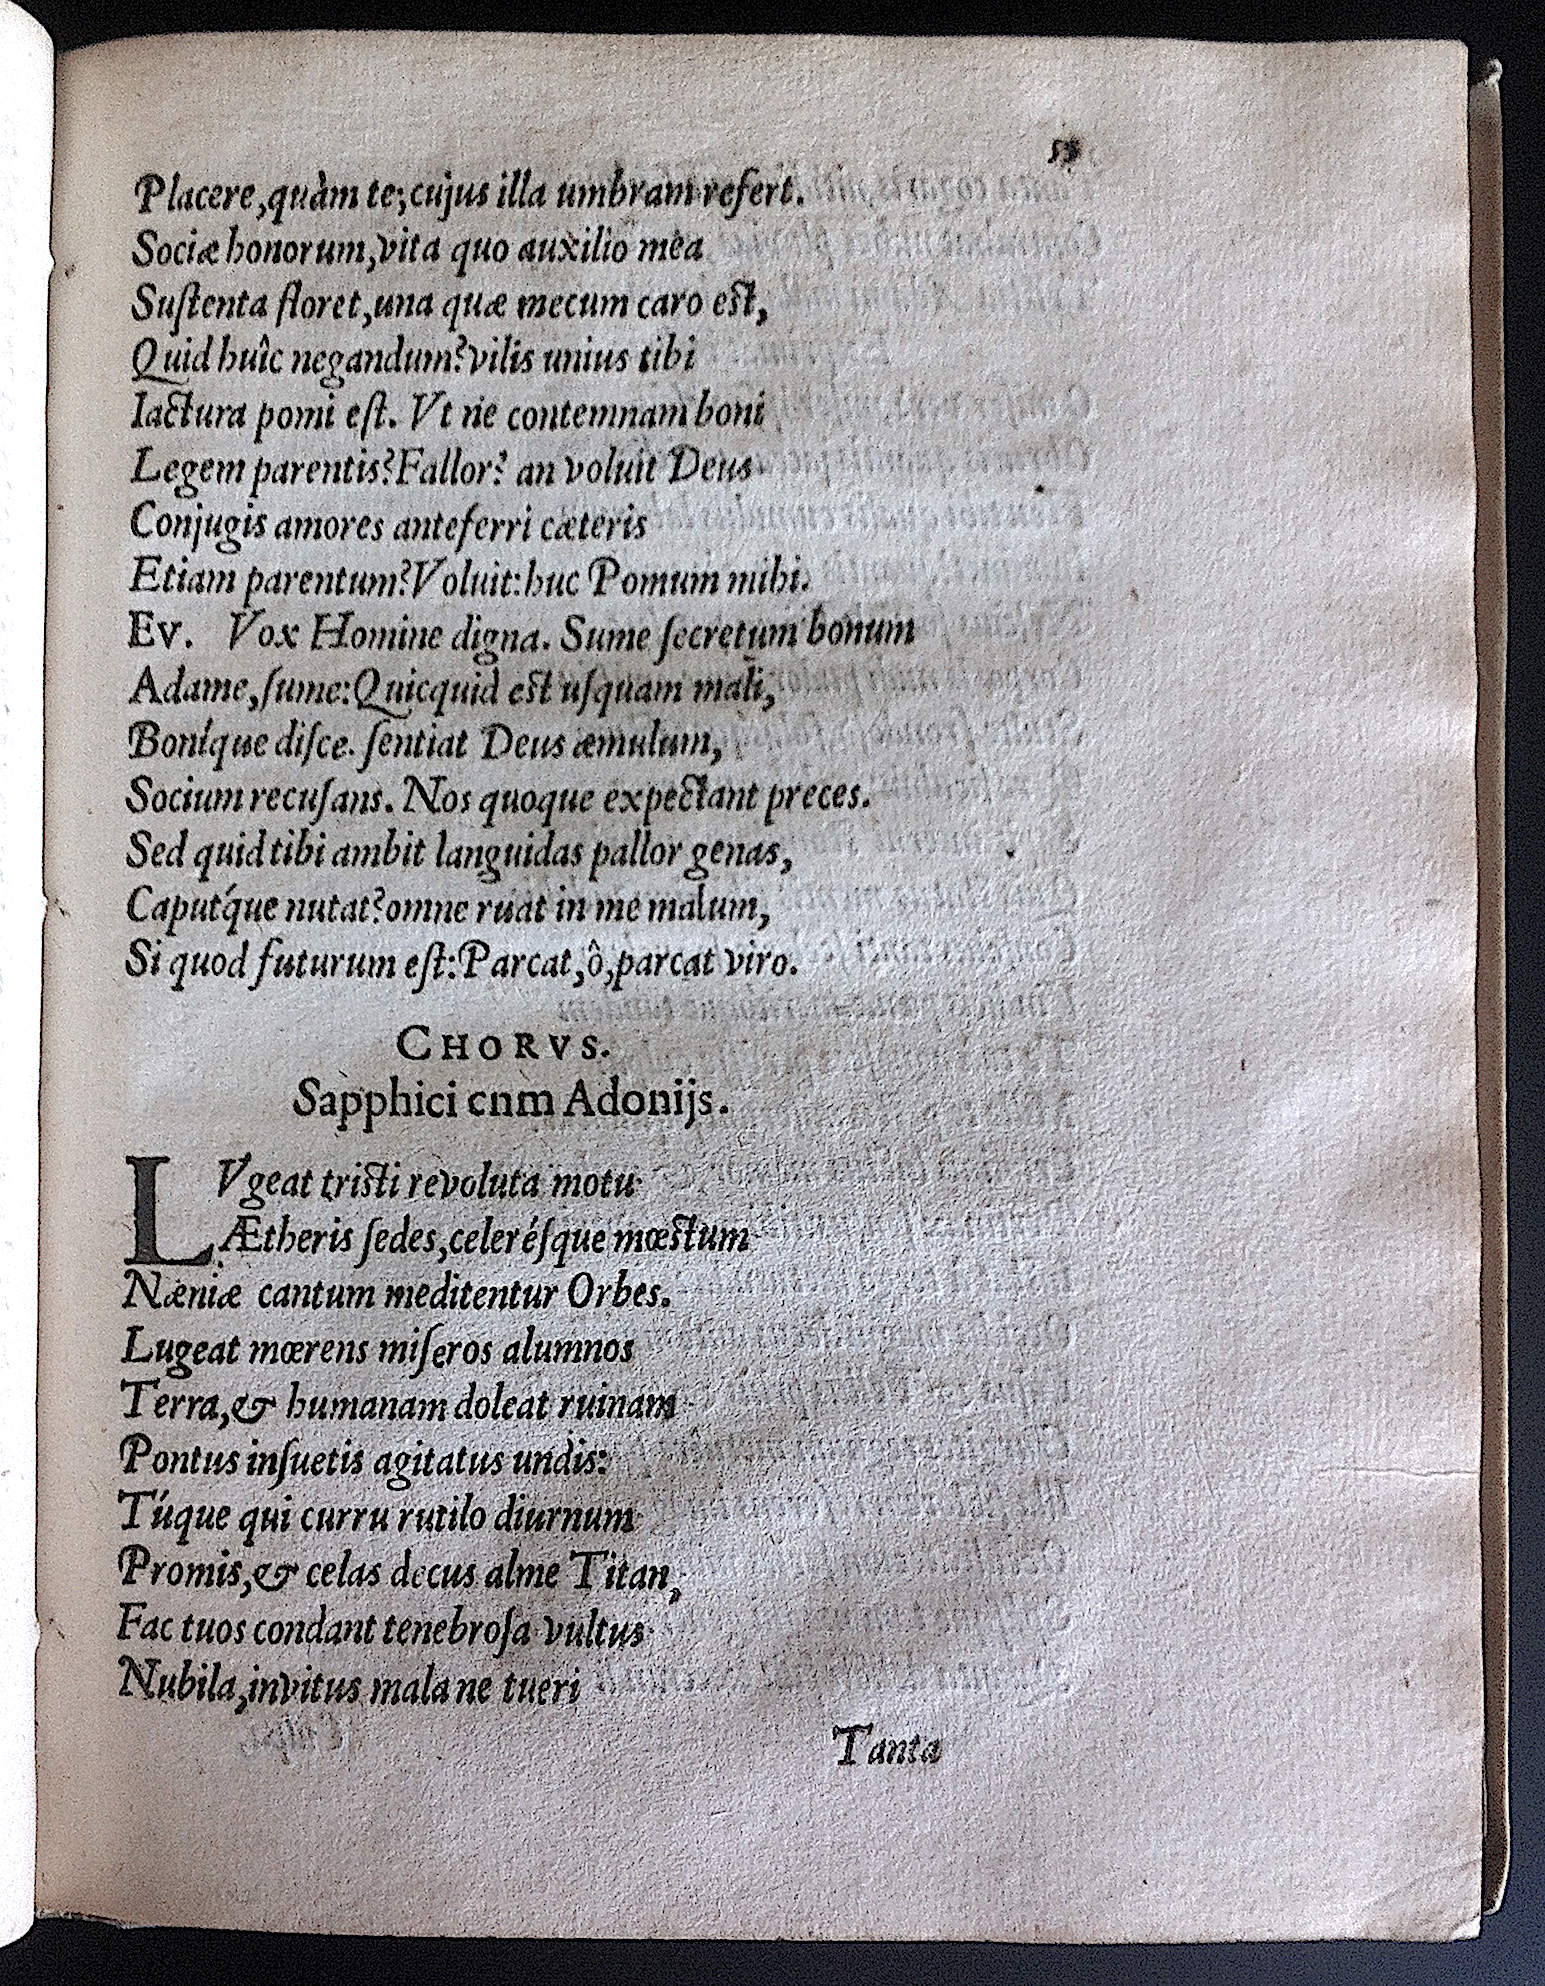 Placere,quàm te;cujus illa umbram refert.
Sociæ honorum,vita quo auxilio mea
Suſtenta floret,una quæ mecum caro eſt,
Quid huîc negandum?vilis unius tibi
Iactura pomi eſt. Vt ne contemnam boni
Legem parentis?Fallor? an voluit Deus
Conjugis amores anteferri cæteris
Etiam parentum?Voluit:huc Pomum mihi.
Ev. Vox Homine digna. Sume ſecretum bonum
Adame,ſume:Quicquid eſt uſquam mali,
Boníque diſce. ſentiat Deus æmulum,
Socium recuſans. Nos quoque expectant preces.
Sed quid tibi ambit languidas pallor genas,
Caputq́ue nutat?omne ruat in me malum,
Si quod futurum eſt:Parcat,ô,parcat viro.
CHORVS.
Sapphici cnm Adonijs.
LVgeat triſti revoluta motu
Ætheris ſedes,celeréſque mœſtum
Næniæ cantum meditentur Orbes.
Lugeat mœrens miſeros alumnos
Terra,& humanam doleat ruinam
Pontus inſuetis agitatus undis:
Túque qui curru rutilo diurnum
Promis,& celas decus alme Titan,
Fac tuos condant tenebroſa vultus
Nubila,invitus mala ne tueri
Tanta